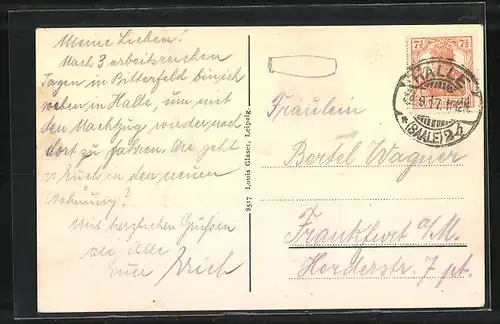 Meine Lieben!
Nach 3 arbeitsreichen
Tagen in Bitterfeld bin ich
eben in Halle, um mit
dem Nachtzug wieder nach
dort zu fahren. Wie geht
es Euch in der neuen
Wohnung?
Mit herzlichen Grüßen
an Alle
Euer Erich
8517 Louis Glaser, Leipzig.
7½ 7½
HALLE
9.17. 11-12N
* (SAALE) 2
Fräulein
Bertel Wagner
Frankfurt a/M.
Herderstr. 7 pt.